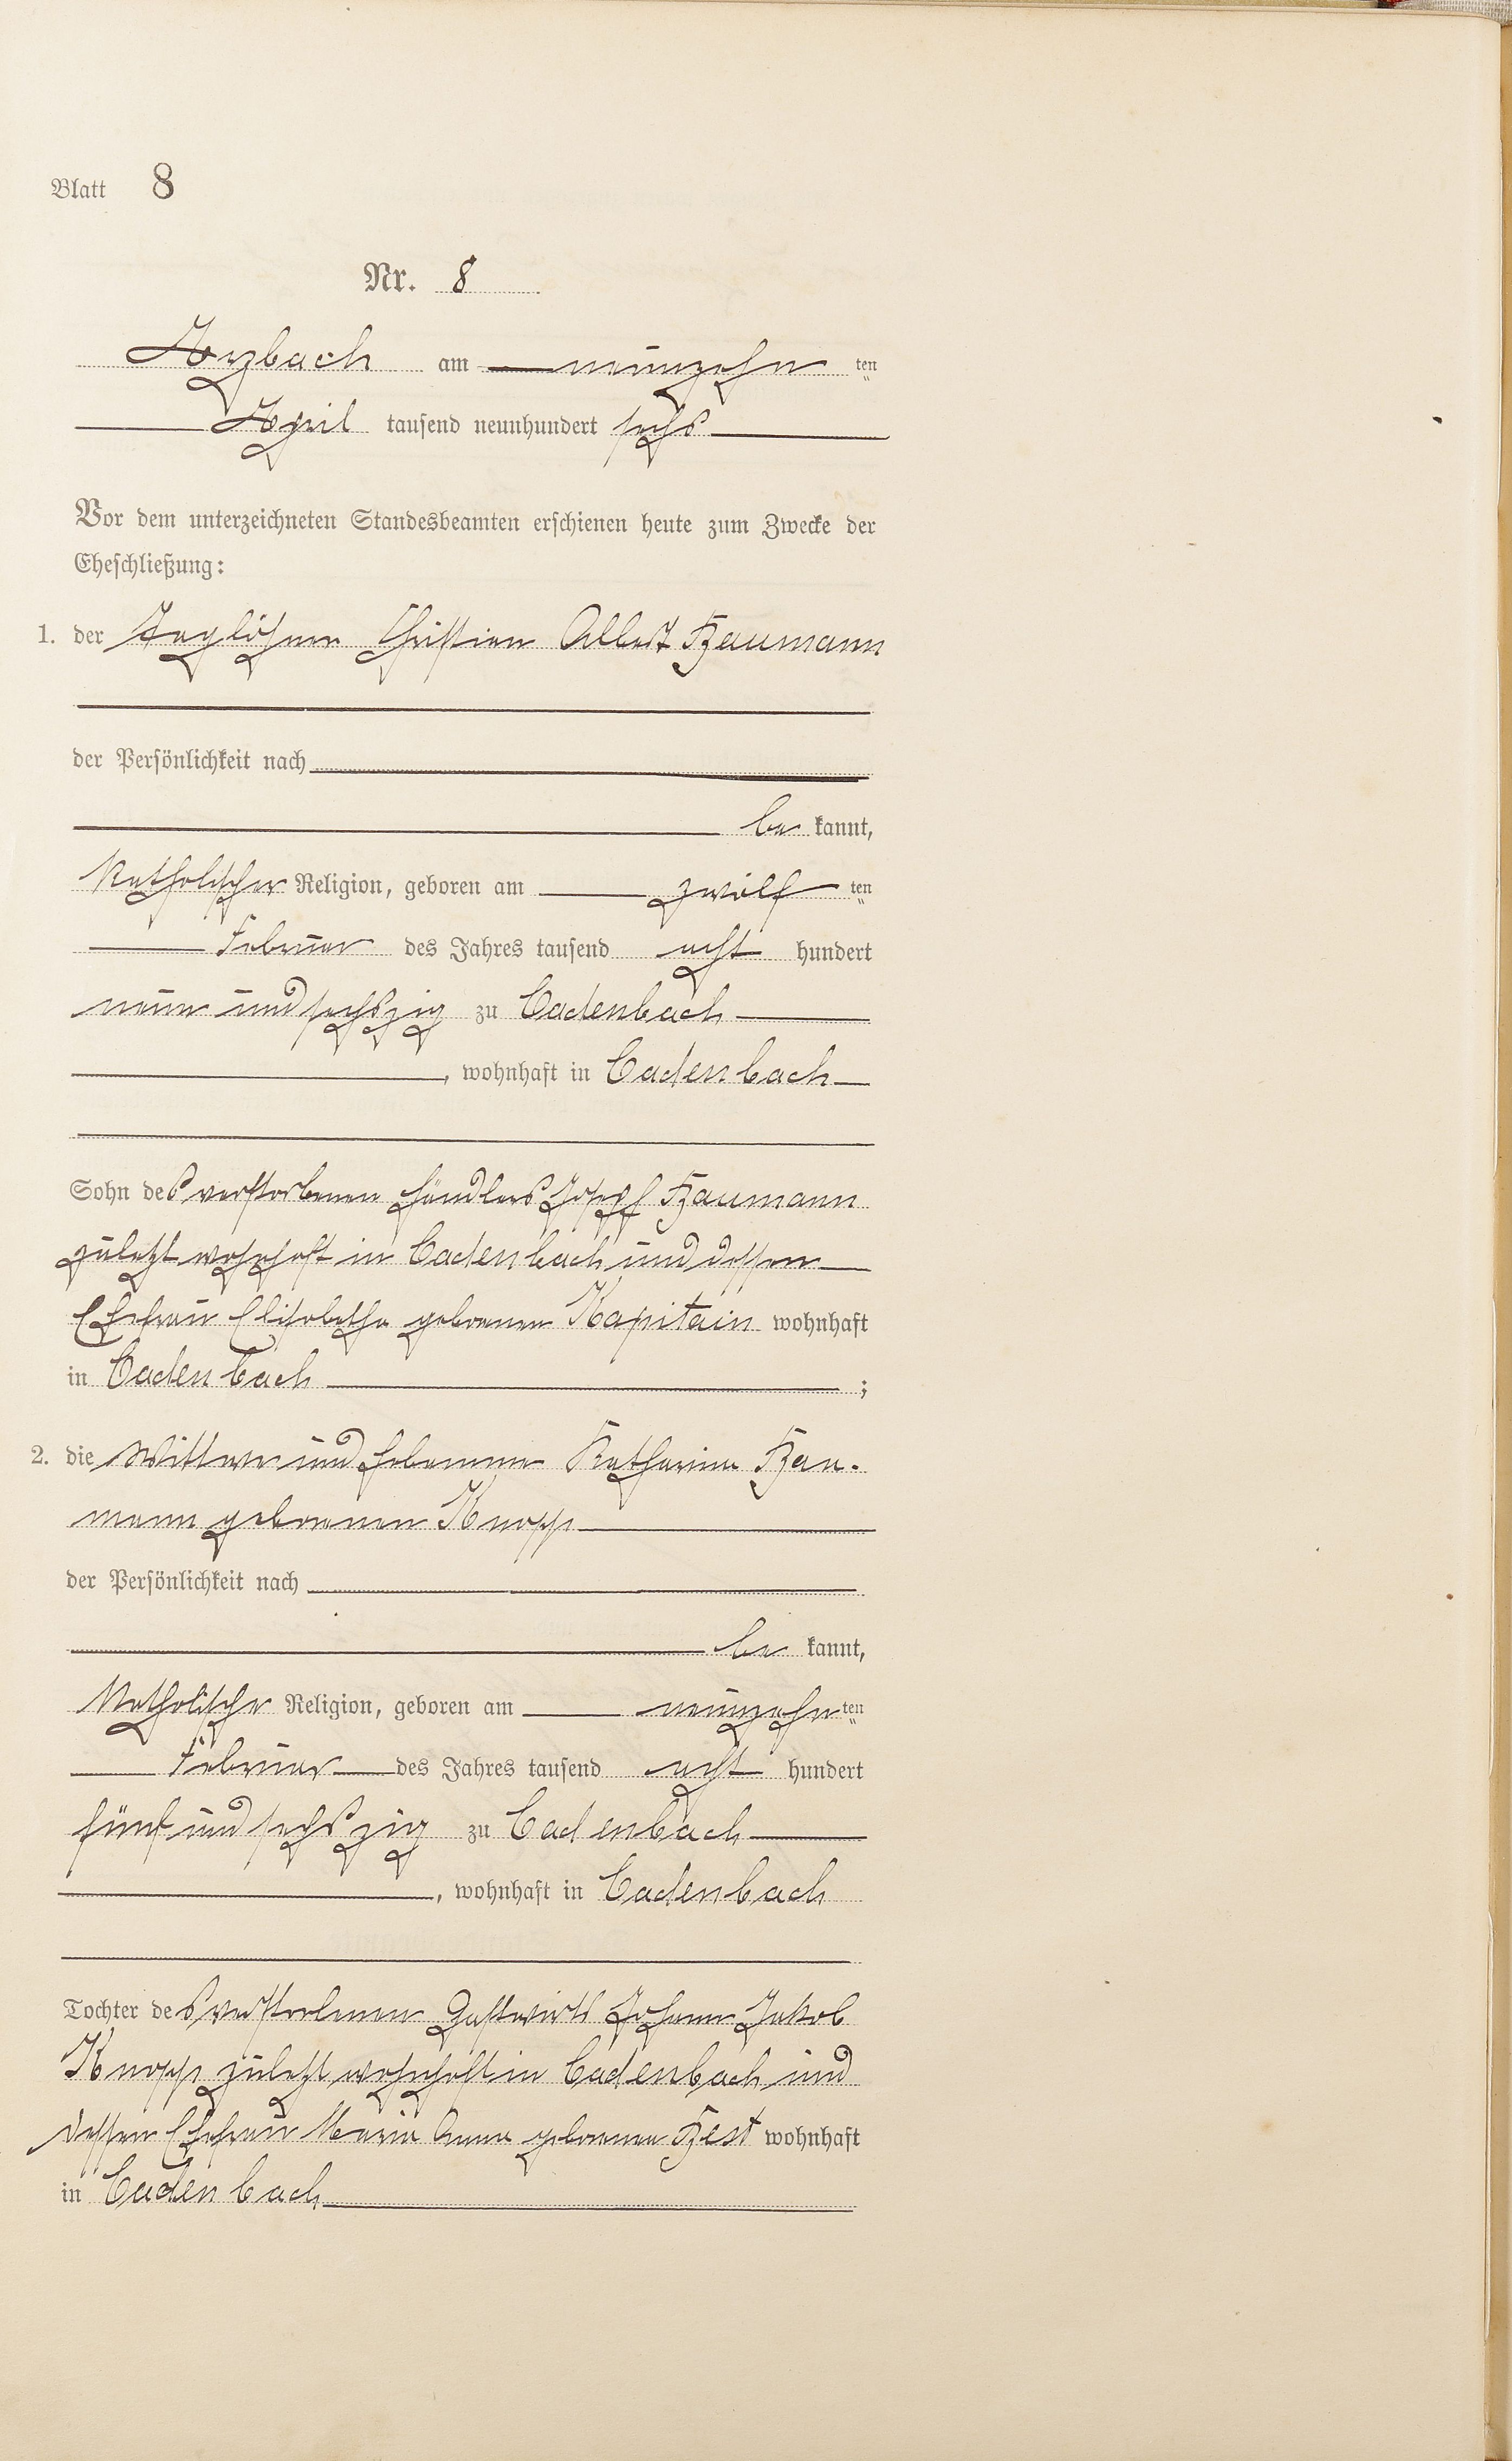 Blatt 8
Nr. 8
Arzbach am neunzehn ten
April tausend neunhundert sechs
Vor dem unterzeichneten Standesbeamten erschienen heute zum Zwecke der
Eheschließung:
1. der Taglöhner Christian Albert Baumann
der Persönlichkeit nach
be kannt,
Katholischer Religion, geboren am zwölf ten
Februar des Jahres tausend acht hundert
neun und sechszig zu Cadenbach
, wohnhaft in Cadenbach
Sohn des verstorbenen Händlers Joseph Baumann
zuletzt wohnhaft in Cadenbach und dessen
Ehefrau Elisabetha geborenen Kapitain wohnhaft
in Cadenbach ;
2. die Wittwe und Hebamme Katharina Bau-
mann geborenen Knopp
der Persönlichkeit nach
be kannt,
Katholischer Religion, geboren am neunzehn ten
Februar des Jahres tausend acht hundert
fünf und sechszig zu Cadenbach
, wohnhaft in Cadenbach
Tochter des verstorbenen Gastwirts Johann Jakob
Knopp zuletzt wohnhaft in Cadenbach und
dessen Ehefrau Maria Anna geborenen Best wohnhaft
in Cadenbach